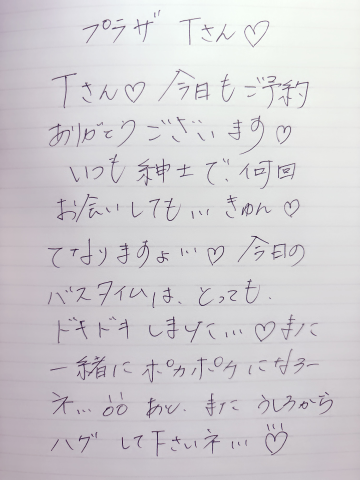 プラザ Tさん♡
Tさん♡ 今日もご予約
ありがとうございます♡
いつも紳士で、何回
お会いしても… きゅん♡
てなりますょ…♡ 今日の
バスタイムは、とっても、
ドキドキしました…♡また
一緒にポカポカになろー
ネ… あと、またうしろから
ハグして下さいネ…♡